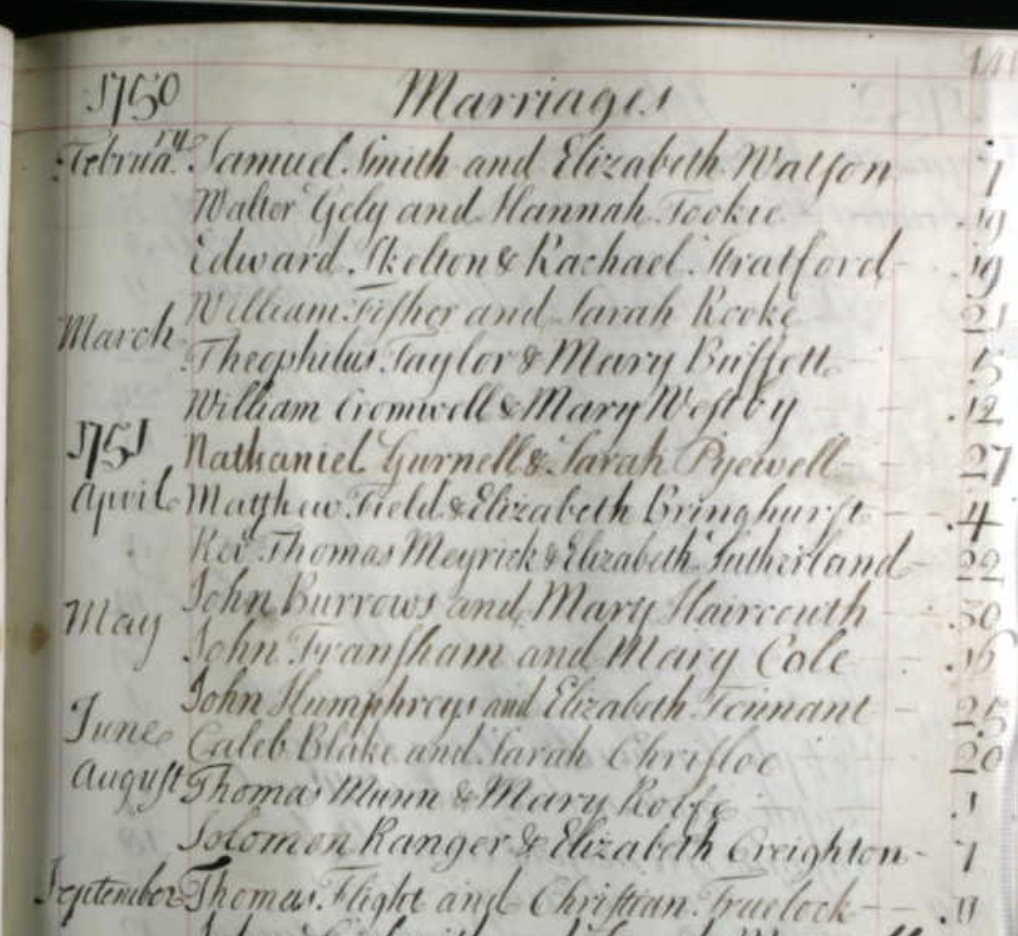 141
1750 Marriages
Februa.ry Samuel Smith and Elizabeth Watson 7
Walter Gely and Hannah Tookie 19
Edward Skelton & Rachael Stratford 19
William Fisher and Sarah Rooke 21
March Theophilus Taylor & Mary Buffett 5
William Cromwell & Mary Westby 12
1751 Nathaniel Gurnell & Sarah Pyewell 27
April Matthew Field & Elizabeth Bringhurst 4
Rev. Thomas Meyrick & Elizabeth Sutherland 22
John Burrows and Mary 30
May John Fransham and Mary Cole 16
John Humphreys and Elizabeth Tennant 25
June Caleb Blake and Sarah Chrisloe 20
August Thomas Munn & Mary Rolfe 1
Solomon Ranger & Elizabeth Creighton 7
September Thomas Flight and Christian Truelock 11